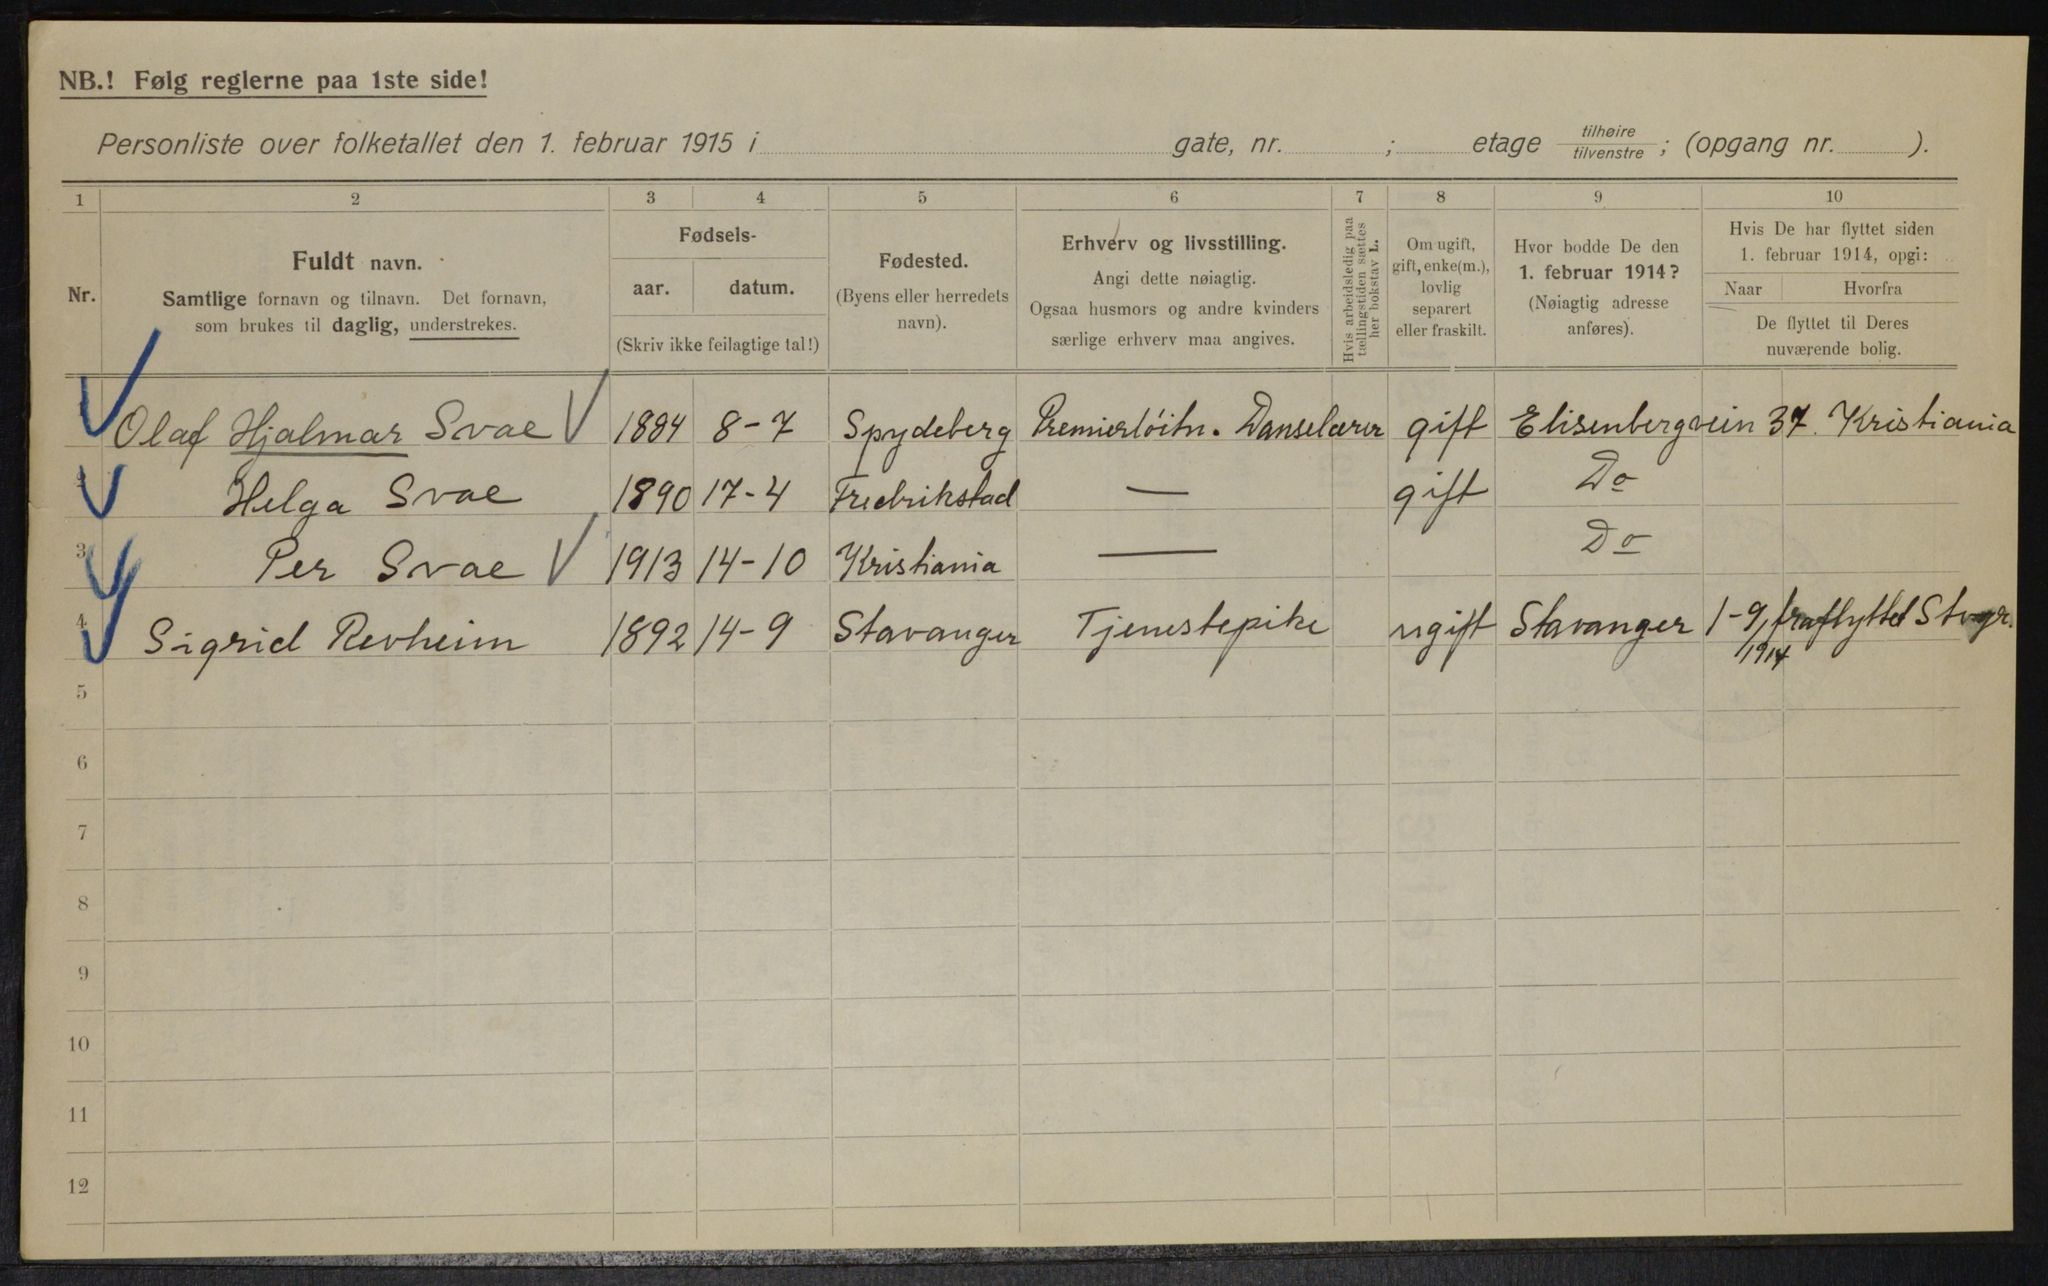 NB.! Følg reglerne paa 1ste side!
Personliste over folketallet den 1. februar 1915 i gate, nr. ; etage tilhøire tilvenstre ; (opgang nr. ).
1 2 3 4 5 6 7 8 9 10
Nr.
Fuldt navn.
Samtlige fornavn og tilnavn. Det fornavn,
som brukes til daglig, understrekes.
Fødsels-
aar. datum.
(Skriv ikke feilagtige tal!)
Fødested.
(Byens eller herredets
navn).
Erhverv og livsstilling.
Angi dette nøiagtig.
Ogsaa husmors og andre kvinders
særlige erhverv maa angives.
Hvis arbeidsledig paa
tællingstiden sættes
her bokstav L.
Om ugift,
gift, enke(m.),
lovlig
separert
eller fraskilt.
Hvor bodde De den
1. februar 1914?
(Nøiagtig adresse
anføres).
Hvis De har flyttet siden
1. februar 1914, opgi:
Naar Hvorfra
De flyttet til Deres
nuværende bolig.
Olaf Hjalmar Svae 1884 8-7 Spydeberg Premierløitn. Danselærer gift Elisenbergvein 37. Kristiania
Helga Svae 1890 17-4 Fredrikstad — gift Do
3 Per Svae 1913 14-10 Kristiania — Do
4 Sigrid Revheim 1892 14-9 Stavanger Tjenestepike ugift Stavanger 1-9, fraflyttet Stvgr.
1914
5
6
7
8
9
10
11
12